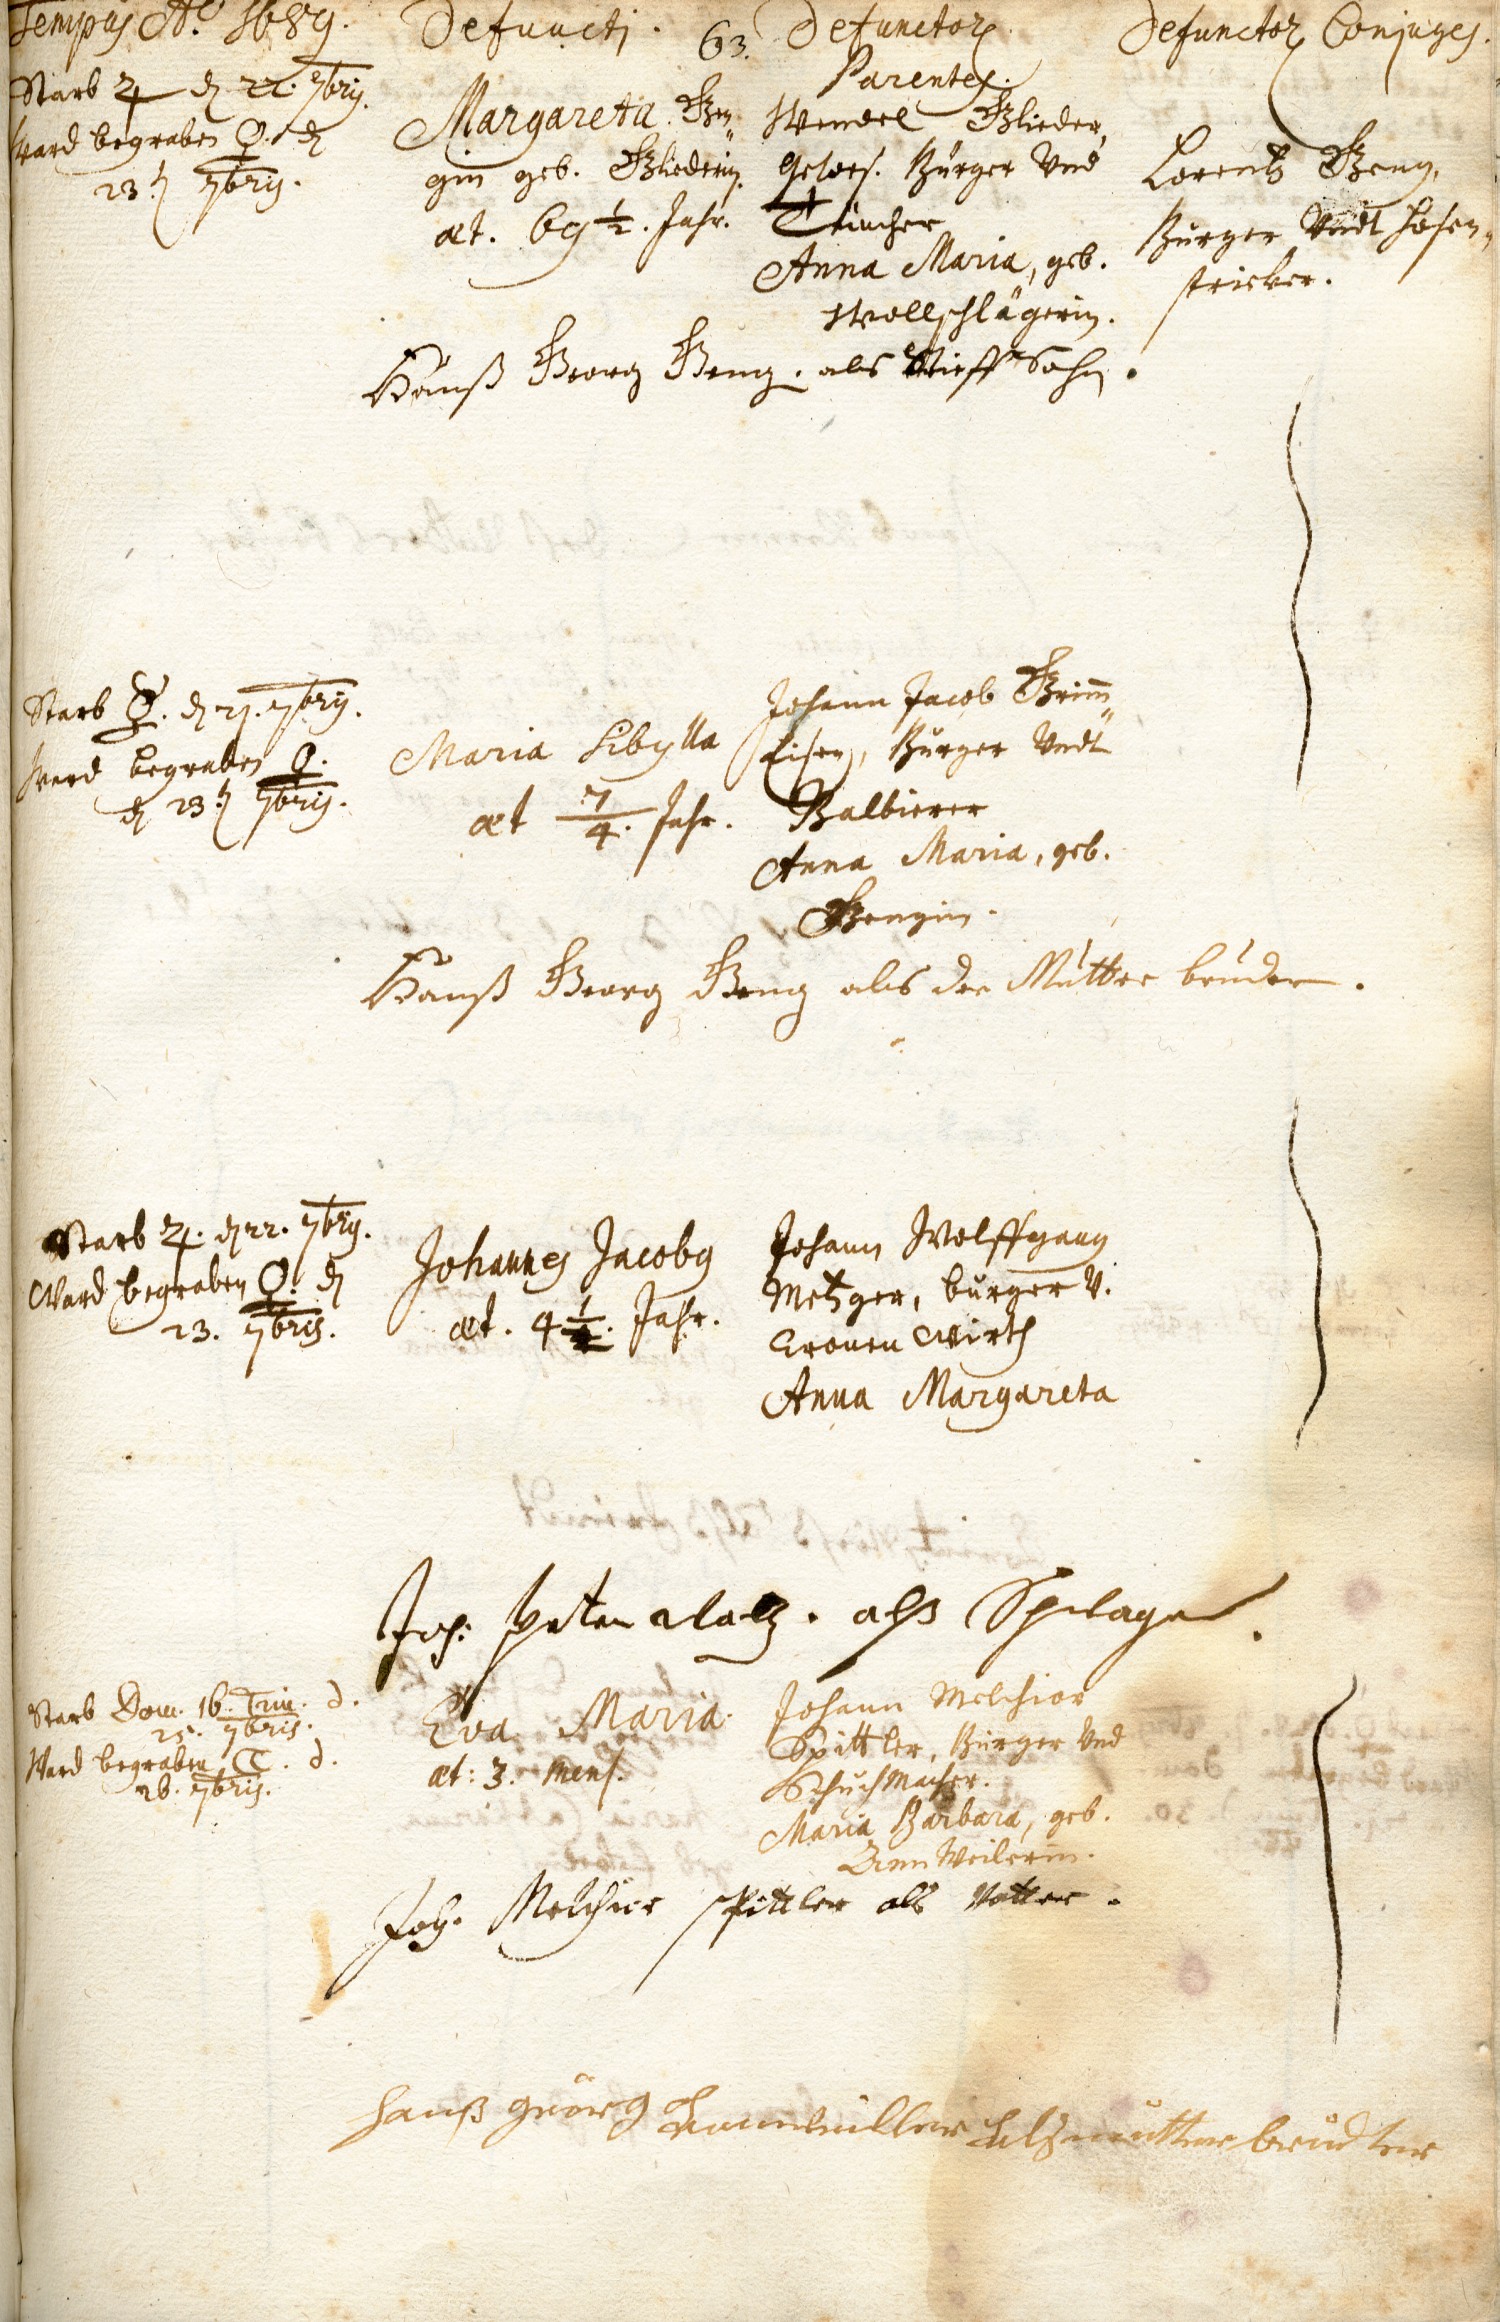 Tempus Aõ. 1689. Defuncti. 63. Defunctor. Defunctor. Conjuges.
Parentes.
Starb ♃ d. 22. 7bris.
Ward begraben ♀. d.
23.t 7bris.
Margareta Gen„
gin geb. Gliederin.
æt. 69 1/2. Jahr.
Wendel Glieder,
gewes. Bürger Und
Tüncher
Anna Maria, geb.
Wollschlägerin.
Lorentz Geng,
Bürger Undt Hosen„
stricker.
Hanß Georg Geng. als Stieff Sohn.
Starb ☿. d. 21. 7bris.
Ward begraben ♀.
d. 23.t 7bris.
Maria Sibylla
æt 7/4. Jahr.
Johann Jacob Grimm„
Eisen, Bürger Undt
Balbierer
Anna Maria, geb.
Gengin.
Hanß Georg Geng als der Mutter bruder.
Starb ♃. d. 22. 7bris.
Ward begraben ♀. d.
23. 7bris.
Johannes Jacobg
æt. 4 1/2. Jahr.
Johann Wolffgang
Metzger, burger V.
Cronen Wirth
Anna Margareta
Joh: Peter alß
Starb Dom. 16. Trin. d.
25. 7bris.
Ward begraben ☾. d.
26. 7bris.
Eva Maria.
æt: 3. Mens.
Johann Melchior
Spittler, Bürger Und
Schuchmacher.
Maria Barbara, geb.
Joh. Melchior Spittler als Vatter.
Hanß Geörg Alß mutter brudter